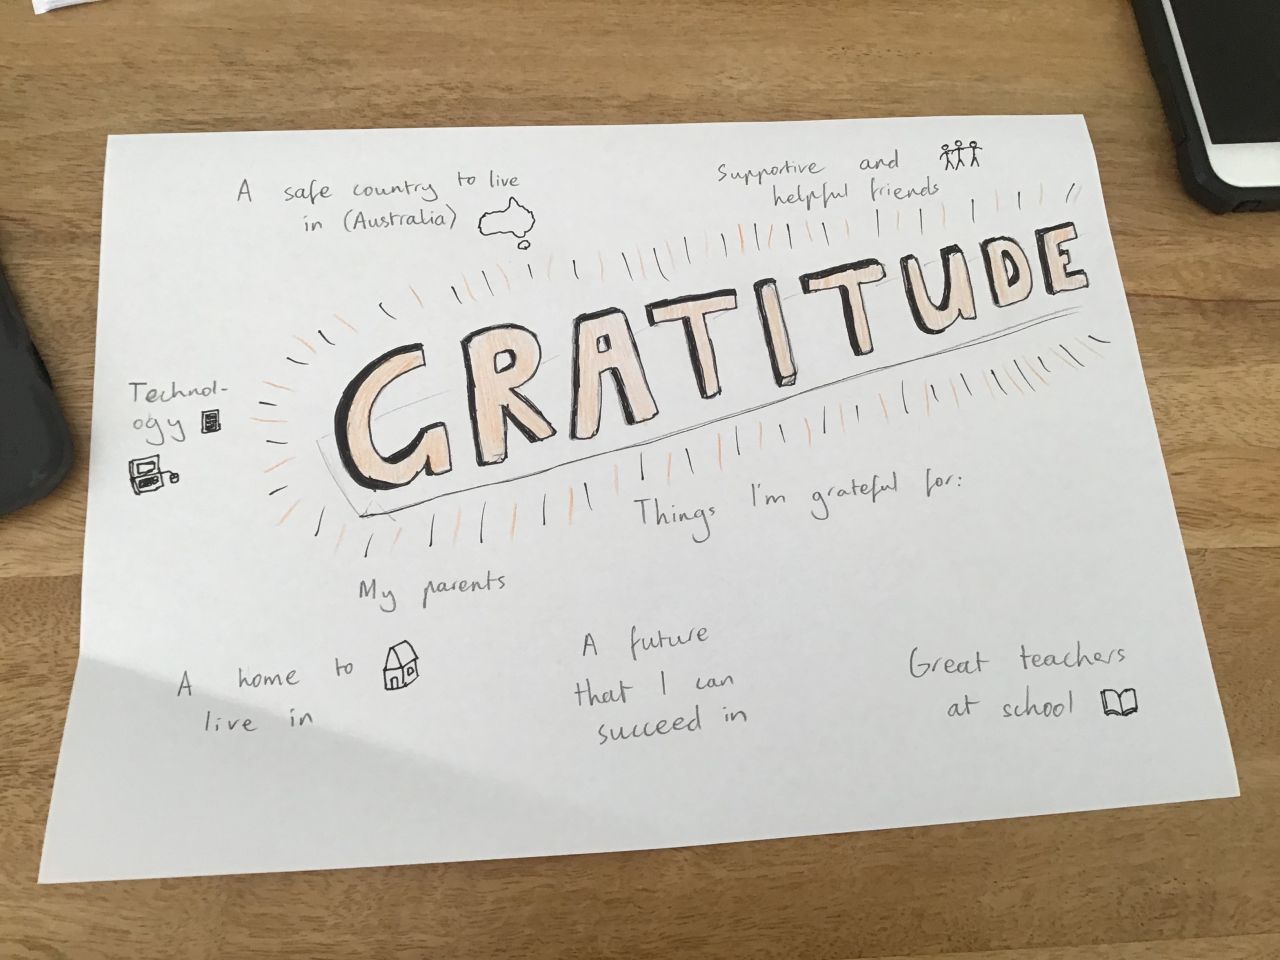 A safe country to live
in (Australia)
Supportive and
helpful friends
GRATITUDE
Technol-
ogy
Things I'm grateful for:
My parents
A home to
live in
A future
that I can
succeed in
Great teachers
at school